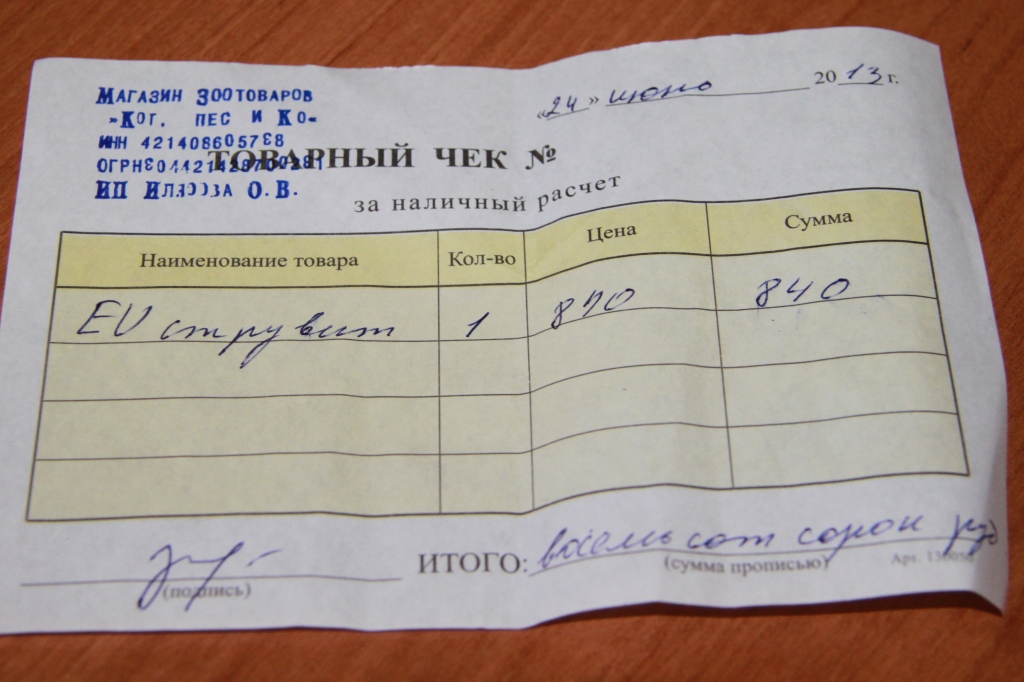 МАГАЗИН ЗООТОВАРОВ
"КОТ, ПЕС И КО"
ИНН 421408605738
ИП О.В.
«24» июно 2013 г.
ТОВАРНЫЙ ЧЕК №
за наличный расчет
Наименование товара Кол-во Цена Сумма
EV струвит 1 840 840
ИТОГО: восемьсот сорок руб
(подпись) (сумма прописью) Арт.